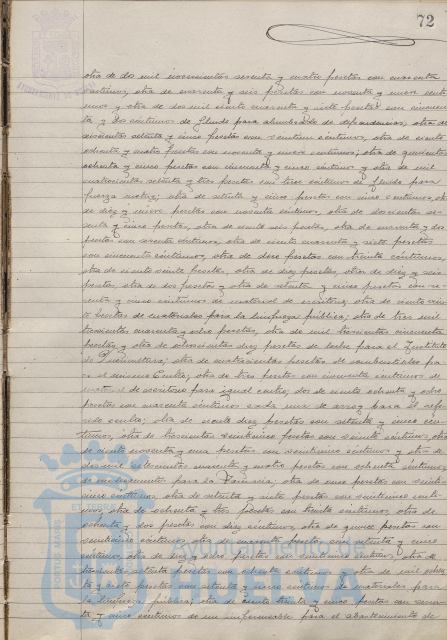 72
otra de dos mil novecientas sesenta y cuatro pesetas con cuarenta
céntimos, otra de cuarenta y seis pesetas con noventa y nueve cénti
mos y otra de dos mil ciento cuarenta y siete pesetas con cincuen
ta y dos céntimos de fluido para alumbrado de dependencias, otra de
doscientas ochenta y cinco pesetas con céntimos, otra de ciento
ochenta y cuatro pesetas con noventa y nueve céntimos; otra de quinientas
ochenta y cinco pesetas con cincuenta y cinco céntimos y otra de mil
cuatrocientas setenta y tres pesetas con trece céntimos de fluido para
fuerza motriz; otra de setenta y cinco pesetas con cinco céntimos, otra
de diez y nueve pesetas con noventa céntimos, otra de doscientas se
senta y cinco pesetas, otra de ciento seis pesetas, otra de cuarenta y dos
pesetas con céntimos, otra de ciento cuarenta y siete pesetas
con cincuenta céntimos, otra de doce pesetas con treinta céntimos,
otra de ciento veinte pesetas, otra de diez pesetas, otra de diez y seis
pesetas, otra de dos pesetas y otra de setenta y cinco pesetas con se
tenta y cinco céntimos de material de escritorio; otra de ciento vein
te pesetas de materiales para la limpieza pública; otra de tres mil
trescientas cuarenta y ocho pesetas, otra de mil trescientas cincuenta
pesetas y otra de ochocientas diez pesetas de leche para el Instituto
de Puericultura; otra de cuatrocientas pesetas de combustibles pa
ra el mismo Centro; otra de tres pesetas con cincuenta céntimos de
material de escritorio para igual centro; dos de ciento ochenta y ocho
pesetas con cuarenta céntimos cada una de arroz para el refe
rido centro; otra de ciento diez pesetas con setenta y cinco cén
timos, otra de trescientas veinticinco pesetas con veinte céntimos, otra
de ciento noventa y una pesetas con veintinueve céntimos y otra de
dos mil setecientas cuarenta y cuatro pesetas con ochenta céntimos
de medicamentos para la Farmacia; otra de once pesetas con veinti
cinco céntimos, otra de setenta y siete pesetas con veintinueve cénti
mos, otra de ochenta y tres pesetas con treinta céntimos, otra de
ochenta y dos pesetas con diez céntimos, otra de quince pesetas con
veinticinco céntimos, otra de cuarenta pesetas con setenta y cinco
céntimos, otra de diez y ocho pesetas con veintinueve céntimos, otra de
trescientas setenta pesetas con ochenta céntimos y otra de mil ochen
ta y siete pesetas con setenta y cinco céntimos de materiales para
la limpieza pública; otra de ciento treinta y cinco pesetas con seten
ta y cinco céntimos de un impermeable para el abastecimiento de